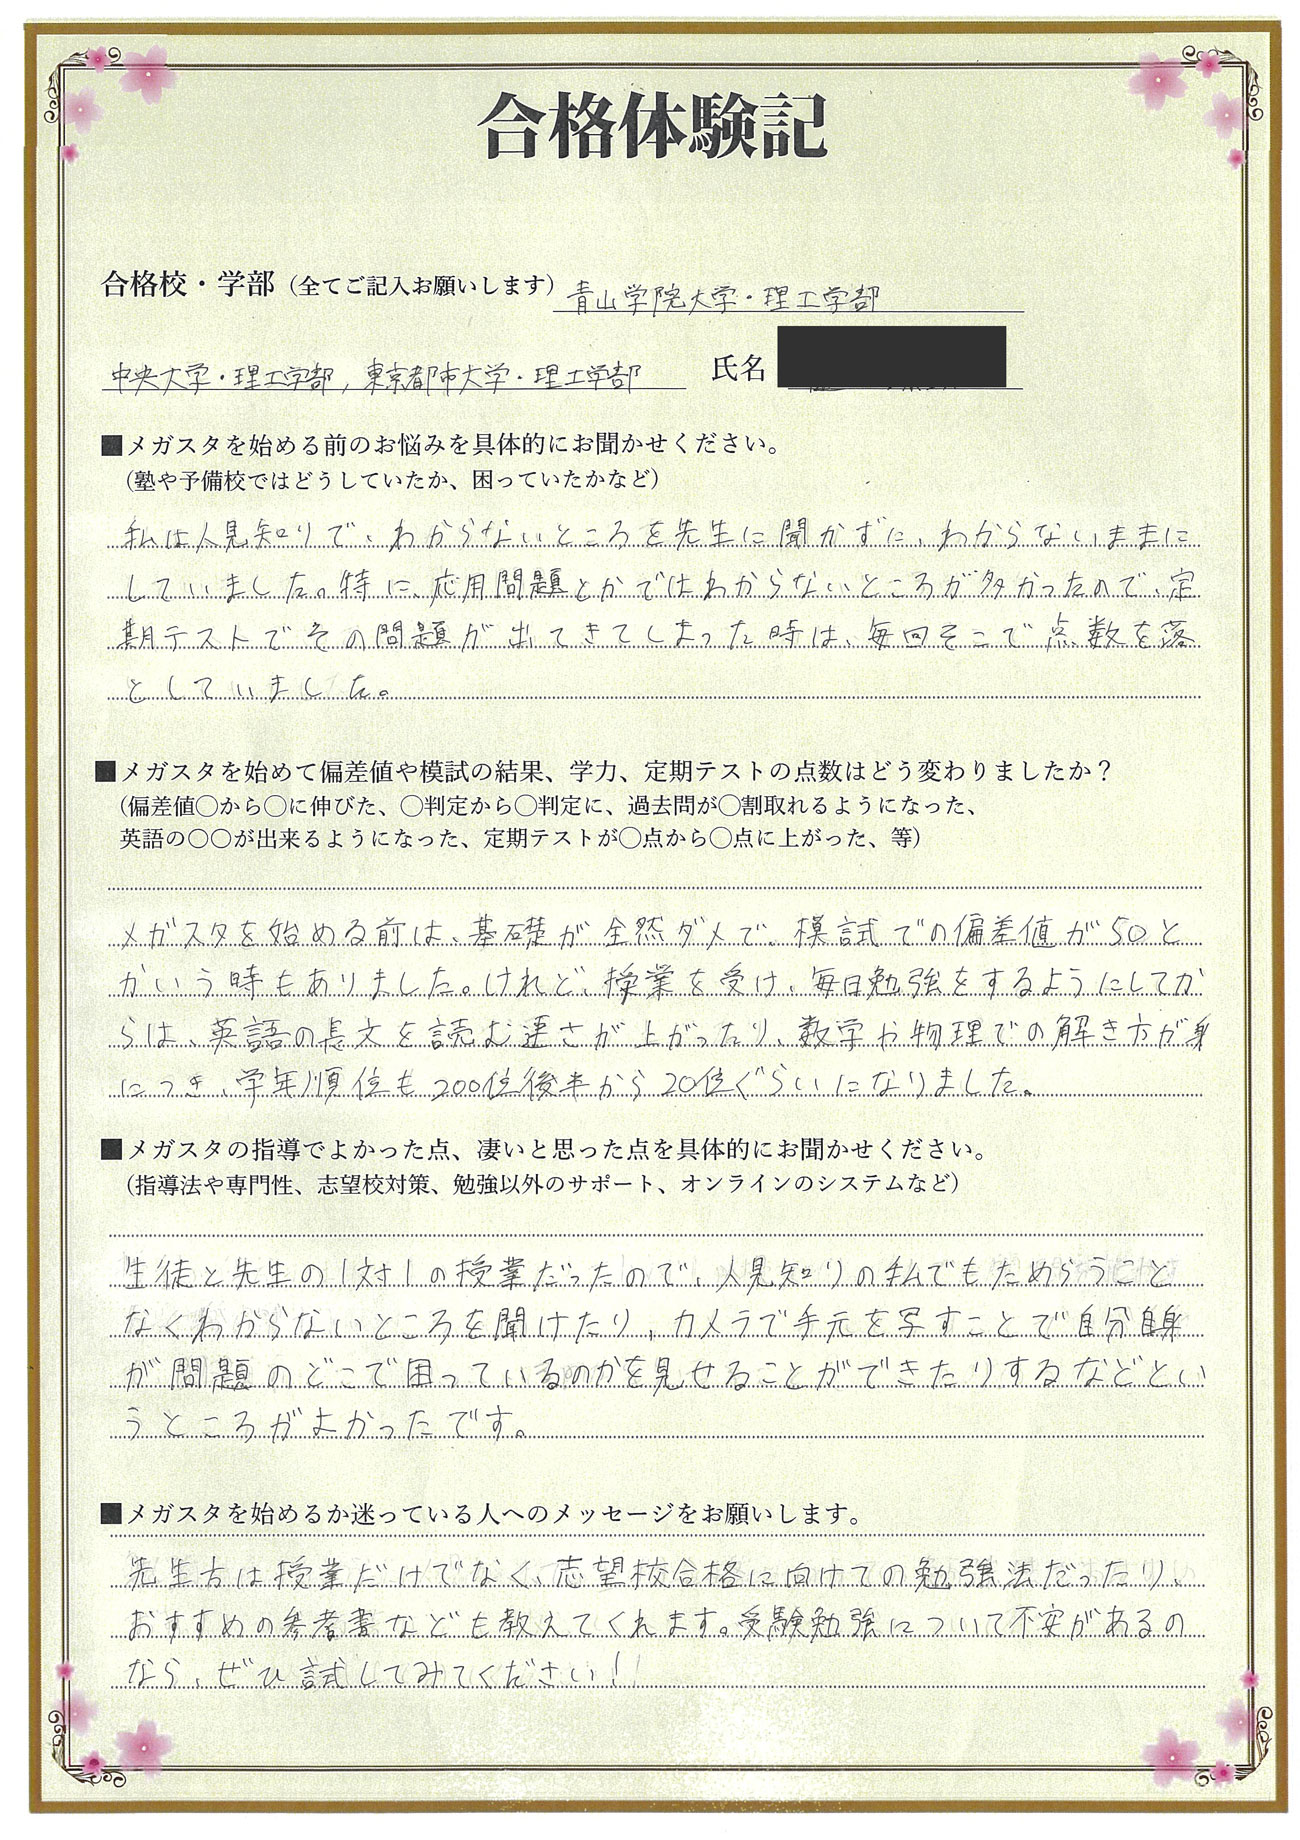 合格体験記
合格校・学部（全てご記入お願いします） 青山学院大学・理工学部
中央大学・理工学部, 東京都市大学・理工学部 氏名
■メガスタを始める前のお悩みを具体的にお聞かせください。
（塾や予備校ではどうしていたか、困っていたかなど）
私は人見知りで、わからないところを先生に聞かずに、わからないままに
していました。特に、応用問題とかではわからないところが多かったので、定
期テストでその問題が出てきてしまった時は、毎回そこで点数を落
としていました。
■メガスタを始めて偏差値や模試の結果、学力、定期テストの点数はどう変わりましたか？
（偏差値〇から〇に伸びた、〇判定から〇判定に、過去問が〇割取れるようになった、
英語の〇〇が出来るようになった、定期テストが〇点から〇点に上がった、等）
メガスタを始める前は、基礎が全然ダメで、模試での偏差値が50と
かいう時もありました。けれど、授業を受け、毎日勉強をするようにしてか
らは、英語の長文を読む速さが上がったり、数学や物理での解き方が身
につき、学年順位も200位後半から20位ぐらいになりました。
■メガスタの指導でよかった点、凄いと思った点を具体的にお聞かせください。
（指導法や専門性、志望校対策、勉強以外のサポート、オンラインのシステムなど）
生徒と先生の1対1の授業だったので、人見知りの私でもためらうこと
なくわからないところを聞けたり、カメラで手元を写すことで自分自身
が問題のどこで困っているのかを見せることができたりするなどとい
うところがよかったです。
■メガスタを始めるか迷っている人へのメッセージをお願いします。
先生方は授業だけでなく、志望校合格に向けての勉強法だったり、
おすすめの参考書なども教えてくれます。受験勉強について不安があるの
なら、ぜひ試してみてください!